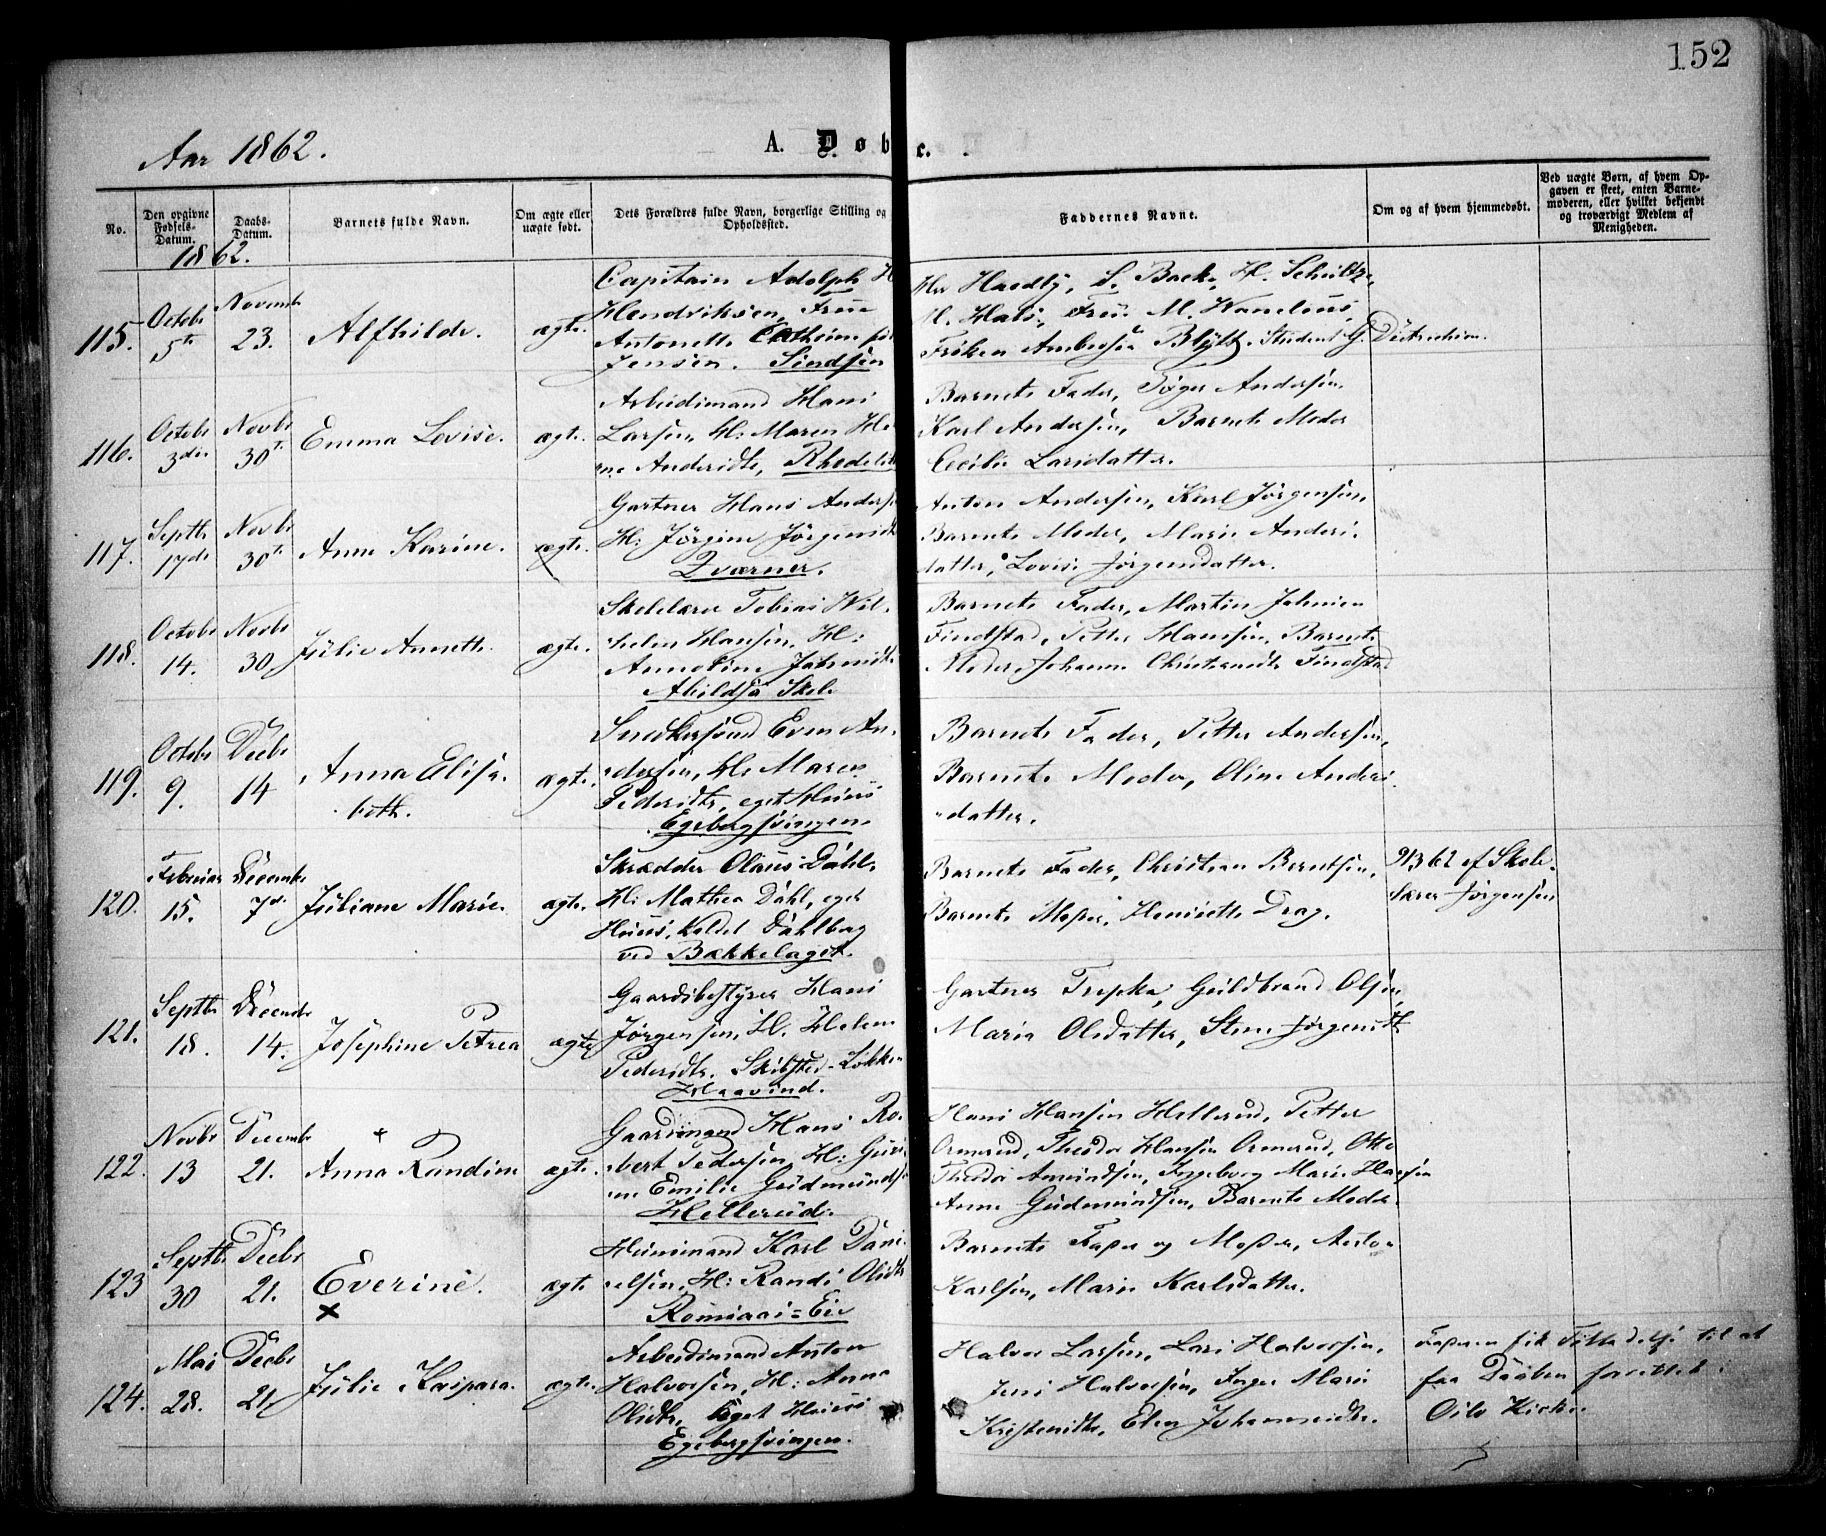 152
Aar 1862.
A. Døbte.
No.
Den opgivne Fødsels-Datum.
Daabs-Datum.
Barnets fulde Navn.
Om ægte eller uægte født.
Dets Forældres fulde Navn, borgerlige Stilling og Opholdssted.
Faddernes Navne.
Om og af hvem hjemmedøbt.
Ved uægte Børn, af hvem Opgaven er skeet, enten Barnemoderen, eller hvilket bekjendt og troværdigt Medlem af Menigheden.
1862.
115. Octobr 5te Novembr 23. Alfhilde. ægte.
Capitain Adolph H
Hendriksen, Frue
Antonette
Jensen.
H. Schultz,
M. Hals, Frue M.
Frøken Blytt, Student G.
116. Octobr 3die Novbr 30te Emma Lovise. ægte.
Arbeidsmand Hans
Larsen, H: Maren He
ne Andersdtr,
Barnets Fader, Andersen,
Karl Andersen, Barnets Moder
Cecilie Larsdatter.
117. Septbr 17de Novbr 30te Anne Karine. ægte.
Gartner Hans Anders
H: Jørgine Jørgensdt
Qværner.
Anton Andersen, Karl Jørgensen,
Barnets Moder, Marie Anders-
datter, Lovise Jørgensdatter.
118. Octobr 14. Novbr 30 Julie Annette. ægte.
Skolelærer Tobias Wil-
helm Hansen, H:
Annoline Johnsdt
Abildsø Skole
Barnets Fader, Martin Johnsen
Findstad, Petter Hanssen, Barnets
Moder, Johanne Christiansdtr Findstad
119. Octobr 9. Decbr 14 Anna Elisa-
beth. ægte.
Snedkersvend Even An-
dersen, H: Maren
Pedersdtr, eget Huus
Egebergsvingen.
Barnets Fader, Petter Andersen,
Barnets Moder, Oline Anders
datter.
120. Februar 15. Decembr 7de Juliane Marie. ægte.
Skrædder Olaus Dahl,
H: Mathea Dahl, eget
Huus, kaldet Dahlborg
ved Bækkelaget.
Barnets Fader, Christian Berntsen,
Barnets Moder, Henriette Drag.
9/3 62 af Skole-
lærer Jørgensen
121. Septbr 18. Decembr 14. Josephine Petrea ægte
Gaardsbestyrer Hans
Jørgensen, H: Helene
Pedersdtr. Skibsted-Løkken
Gartner Trepka, Guldbrand Olsen,
Maria Olsdatter, Stine Jørgensdtr
122. Novbr 13 Decembr 21. Anna Randine ægte.
Gaardmand Hans Ro-
bert Pedersen, H: Guri-
ne Emilie Gudmunds
Hellerud.
Hans Hansen Hellerud, Petter
Ormerud, Theodor Hansen Ormerud, Otto
Theodor Amundsen, Ingeborg Marie Hansen
Anne Gudmundsen, Barnets Moder.
123 Septbr 30 Decbr 21. Everine. ægte
Huusmand Karl Dani-
elsen, H: Randi Olsdtr
Romsaas-Eie
Barnets Fader og Moder, Anton
Karlsen, Marie Karlsdatter.
124. Mai 28. Decbr 21 Julie Kaspara. ægte.
Arbeidsmand Anton
Halvorsen, H: Anna
Olsdtr, Eget Huus
Egebergsvingen.
Halvor Larsen, Lars Halvorsen,
Jens Halvorsen, Inger Marie
Kristensdtr, Elen Johannesdtr.
Faderen fik Tilladelse til at
faa Daaben forrettet i
Oslo Kirke.